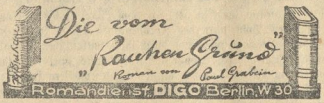 Die vom
„Rauhen Grund“
Roman von Paul Grabein
Romandienst DIGO Berlin, W 30